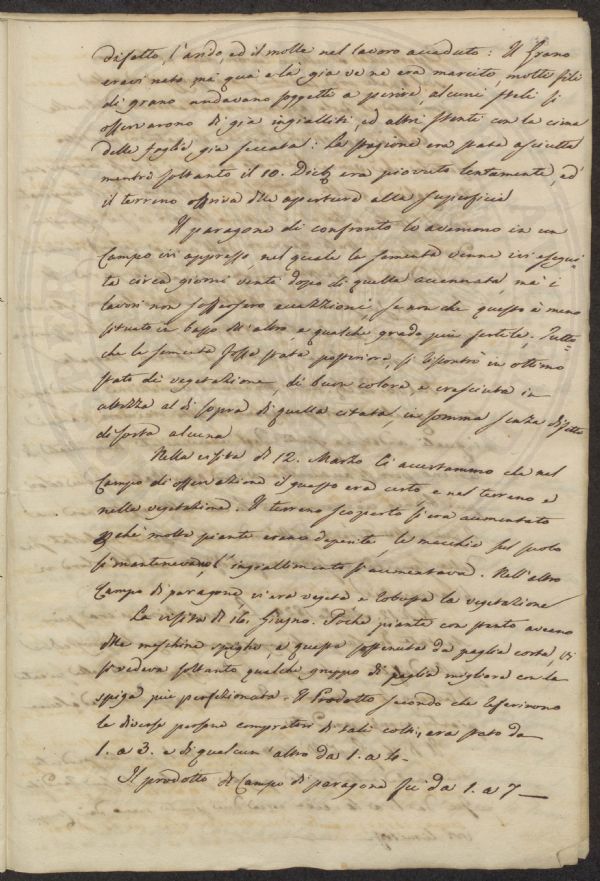 difetto, l'arido, ed il molle nel lavoro accaduto: Il Grano
eravi nato, ma qua e là già ve ne era marcito, molti fili
di grano andavano soggetti a perire, alcuni steli si
osservarono di già ingialliti, ed altri stenti con la cima
delle foglie già seccata: La stagione era stata asciutta
mentre soltanto il 10. era piovuto lentamente, ed
il terreno offriva delle aperture alla superficie
Il paragone di confronto lo avemmo in un
Campo ivi appresso, nel quale la sementa venne ivi esegui-
ta circa giorni venti dopo di quella accennata, ma i
lavori non soffersero eccezzioni, se non che questo è meno
situato in basso dell'altro, e qualche grado più fertile. Tutto-
che la sementa fosse stata posteriore, si riscontrò in ottimo
stato di vegetazione, di buon colore, e cresciuta in
altezza al di sopra di quella citata, in somma senza difetto
di sorta alcuna
Nella visita di 12. Marzo Ci accertammo che nel
Campo di osservazione il guasto era certo, e nel terreno e
nella vegetazione. Il terreno scoperto si era aumentato
molte piante erano deperite, le macchie sul suolo
si mantenevano, l'ingiallimento s'aumentava. Nell'altro
Campo di paragone, vi era vegeta e robusta la vegetazione
La visita di 16. Giugno. Poche piante con stento aveano
delle meschine spighe, e queste sostenute da paglia corta, vi
si vedeva soltanto qualche gruppo di paglia migliore con la
spiga più perfezionata. Il Prodotto secondo che riferirono
le diverse persone compratori di tali colti, era stato da
1. a 3. e di qualcun'altro da 1. a 4.
Il prodotto del Campo di paragone fu da 1. a 7